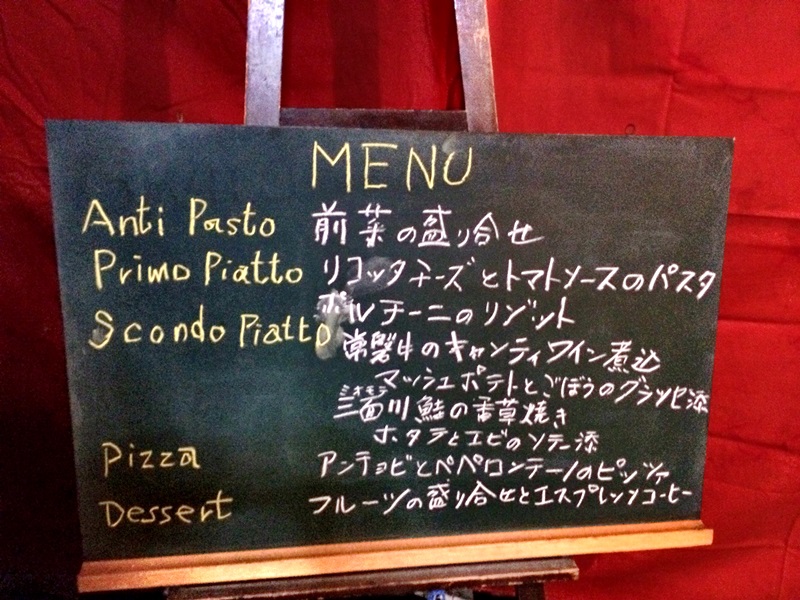 MENU
Anti Pasto 前菜の盛り合せ
Primo Piatto リコッタチーズとトマトソースのパスタ
ポルチーニのリゾット
Scondo Piatto 常磐牛のキャンティワイン煮込
マッシュポテトとごぼうのグラッセ添
ミオモテ
三面川鮭の香草焼き
ホタテとエビのソテー添
Pizza アンチョビとペペロンチーノのピッツァ
Dessert フルーツの盛り合せとエスプレッソコーヒー